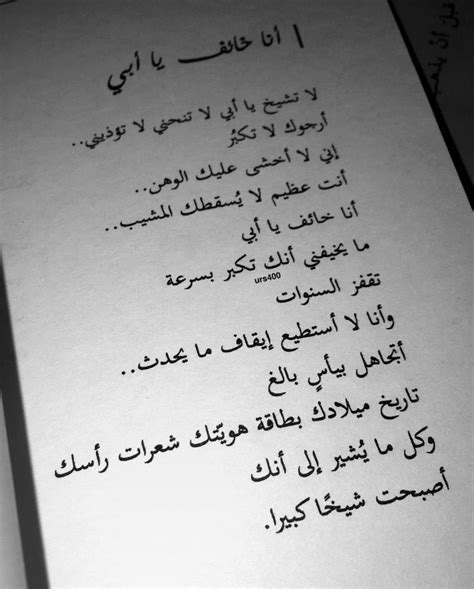 أنا خائف يا أبي
لا تشيخ يا أبي لا تنحني لا تؤذيني..
أرجوك لا تكبُر
إني لا أخشى عليك الوهن..
أنت عظيم لا يُسقطك المشيب..
أنا خائف يا أبي
ما يخيفني أنك تكبر بسرعة
urs400
تقفز السنوات
وأنا لا أستطيع إيقاف ما يحدث..
أتجاهل بيأسٍ بالغ
تاريخ ميلادك بطاقة هويّتك شعرات رأسك
وكل ما يُشير إلى أنك
أصبحت شيخًا كبيرا.
قبل أن يذهب